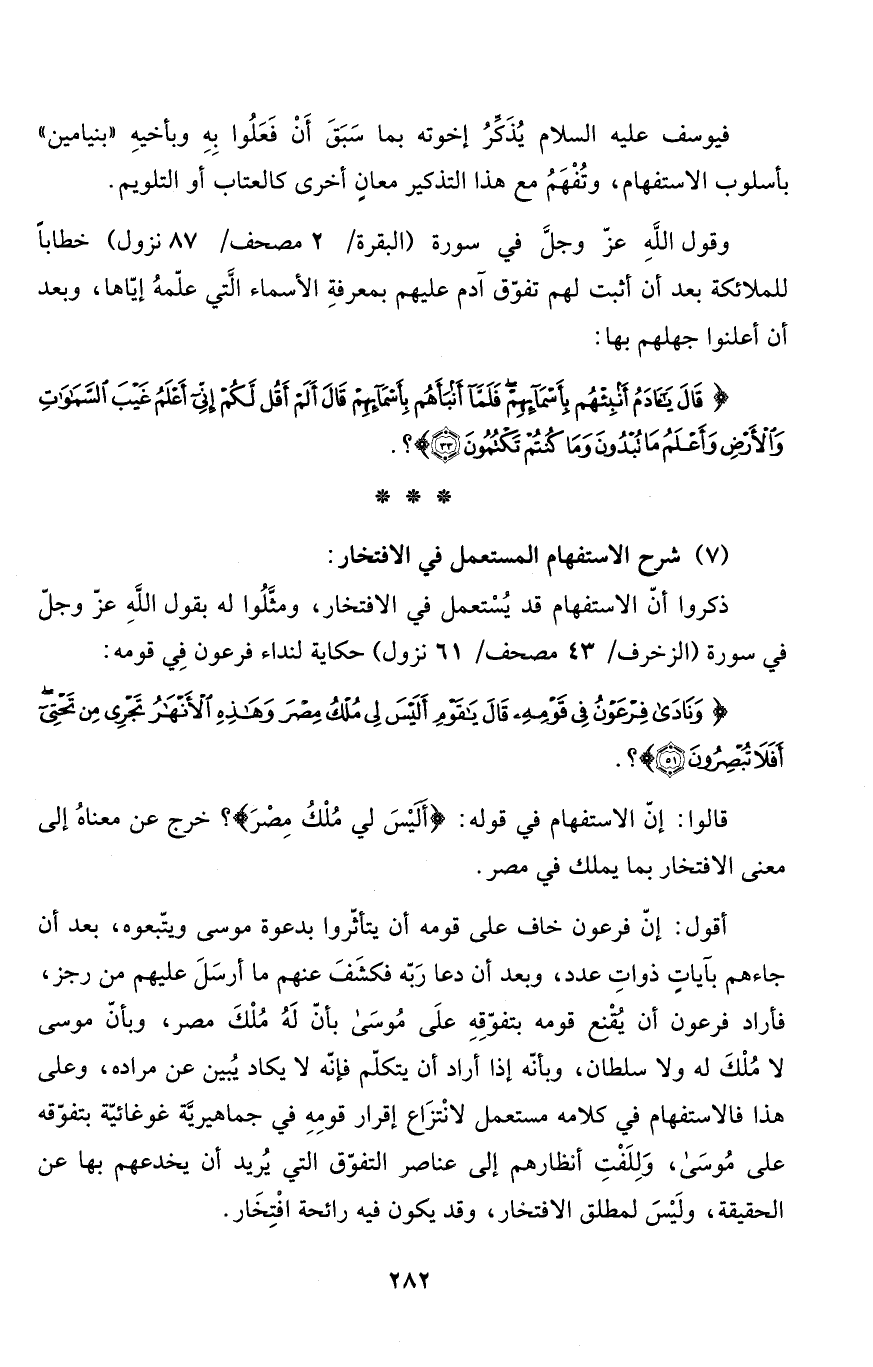 فيوسف عليه السلام يُذَكِّرُ إخوته بما سَبَقَ أَنْ فَعَلُوا بِهِ وبأخيهِ «بنيامين»
بأسلوب الاستفهام، وتُفْهَمُ مع هذا التذكير معانٍ أخرى كالعتاب أو التلويم.
وقول اللَّهِ عزّ وجلَّ في سورة (البقرة/ ٢ مصحف/ ٨٧ نزول) خطاباً
للملائكة بعد أن أثبت لهم تفوّق آدم عليهم بمعرفةِ الأسماء الَّتي علّمهُ إيّاها، وبعد
أن أعلنوا جهلهم بها:
﴿ قَالَ يَٰٓـَٔادَمُ أَنۢبِئۡهُم بِأَسۡمَآئِهِمۡۖ فَلَمَّآ أَنۢبَأَهُم بِأَسۡمَآئِهِمۡ قَالَ أَلَمۡ أَقُل لَّكُمۡ إِنِّيٓ أَعۡلَمُ غَيۡبَ ٱلسَّمَٰوَٰتِ
وَٱلۡأَرۡضِ وَأَعۡلَمُ مَا تُبۡدُونَ وَمَا كُنتُمۡ تَكۡتُمُونَ ٣٣﴾؟.
* * *
(٧) شرح الاستفهام المستعمل في الافتخار:
ذكروا أنّ الاستفهام قد يُسْتعمل في الافتخار، ومثَّلُوا له بقول اللَّهِ عزّ وجلّ
في سورة (الزخرف/ ٤٣ مصحف/ ٦١ نزول) حكاية لنداء فرعون فِي قومه:
﴿ وَنَادَىٰ فِرۡعَوۡنُ فِي قَوۡمِهِۦ قَالَ يَٰقَوۡمِ أَلَيۡسَ لِي مُلۡكُ مِصۡرَ وَهَٰذِهِ ٱلۡأَنۡهَٰرُ تَجۡرِي مِن تَحۡتِيٓۚ
أَفَلَا تُبۡصِرُونَ ٥١﴾؟.
قالوا: إنّ الاستفهام في قوله: ﴿أَلَيْسَ لي مُلْكُ مِصْرَ﴾؟ خرج عن معناهُ إلى
معنى الافتخار بما يملك في مصر.
أقول: إنّ فرعون خاف على قومه أن يتأثّروا بدعوة موسى ويتّبعوه، بعد أن
جاءهم بآياتٍ ذواتِ عدد، وبعد أن دعا رَبّه فكشَفَ عنهم ما أرسَلَ عليهم من رجز،
فأراد فرعون أن يُقْنِع قومه بتفوّقِهِ علَى مُوسَىٰ بأنّ لَهُ مُلْكَ مصر، وبأنّ موسى
لا مُلْكَ له ولا سلطان، وبأنّه إذا أراد أن يتكلّم فإنّه لا يكاد يُبين عن مراده، وعلى
هذا فالاستفهام في كلامه مستعمل لانْتزَاع إقرار قومِهِ في جماهيريَّة غوغائيّة بتفوّقه
على مُوسَىٰ، وَلِلَفْتِ أنظارهم إلى عناصر التفوّق التي يُريد أن يخدعهم بها عن
الحقيقة، ولَيْسَ لمطلق الافتخار، وقد يكون فيه رائحة افْتِخَار.
٢٨٢